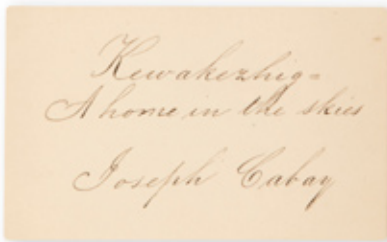 Kewakezhig=
A home in the skies
Joseph Cabay